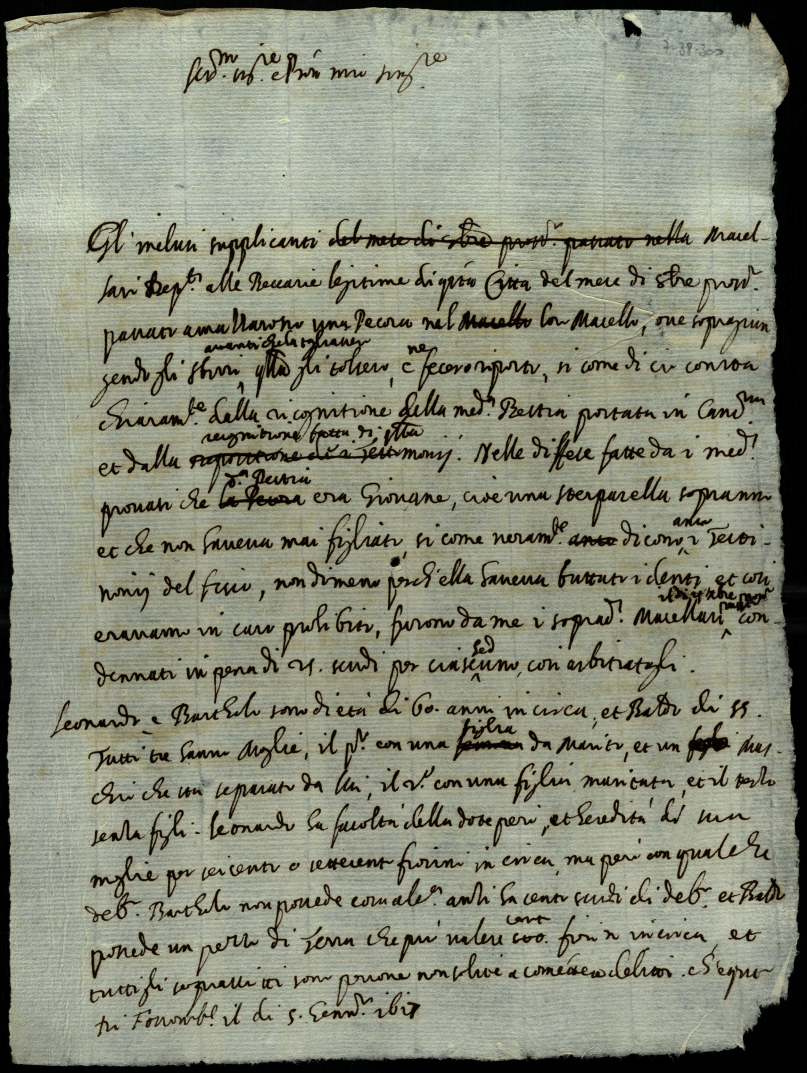 7-38-300
Ser.mo Sig.re e P'ron mio Sing.re
Gl'inclusi supplicanti del mese di 8bre pross.o passato nella Macel-
lari Dep.ti alle Beccarie legitime di q'sta Città del mese di 8bre pross.o
passato una Pecora nel Macello lor Macello, ove sopragiun
avanti che la tagliassero
gendo gli sbirri q'lla gli tolsero, e ne fecero riporto, si come di ciò consta
chiaram.te dalla ricognitione della med.a Bestia portata in Canc.ria
recognitione fatta di q'lla
et dalla Testimonij. Nelle diffese fatte da i med.i
d.a Bestia
provati che la Pecora era Giovane, cioè una sterparella sopranno
et che non haveva mai figliato, si come veram.te anco dicono anco i Testi-
monij del fisco, nondimeno perch'ella haveva buttato i denti et così
eravamo in caso prohibito, furono da me i soprad.i Macellari con-
dennati in pena di 25. scudi per ciascheduno, con arbitratagli.
Leonardo e Bartholo sono di età di 60. anni in circa, et Baldo di 55.
figlia
Tutti tre hanno Moglie, il p.o con una da Marito, et un figlio Mas-
chio che sta separato da lui, il 2.o con una figlia maritata, et il terzo
senza figli. Leonardo ha facoltà della dote però, et heredità di sua
moglie per seicento o settecento fiorini in circa, ma però con qualche
deb.o Bartholo non possede cosa alc.a anzi ha cento scudi di deb.o et Baldo
cento
possede un pezzo di Terra che può valere fiorini in circa, et
tutti gli soprascritti sono persone non solite a commettere delitti. Ch'è quan
to Fossomb.e il di 5. Genn.ro 1617